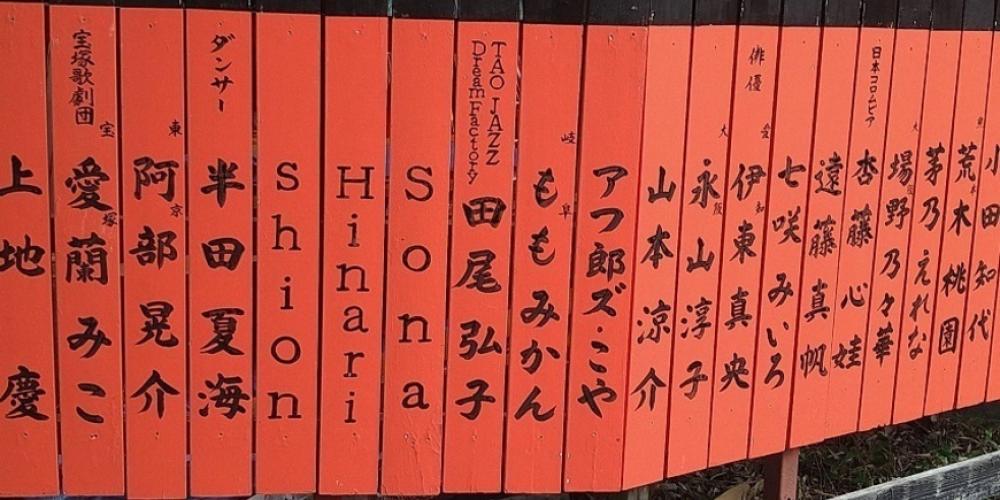 上地慶
宝塚歌劇団
宝塚
愛蘭みこ
東京
阿部晃介
ダンサー
半田夏海
Shion
Hinari
Sona
TAO JAZZ
Dream Factory
田尾弘子
岐阜
ももみかん
アフ郎ズ・こや
山本涼介
大阪
永山淳子
俳優
愛知
伊東真央
七咲みいろ
遠藤真帆
日本コロムビア
杏藤心娃
場野乃々華
茅乃えれな
荒木桃園
小田知代